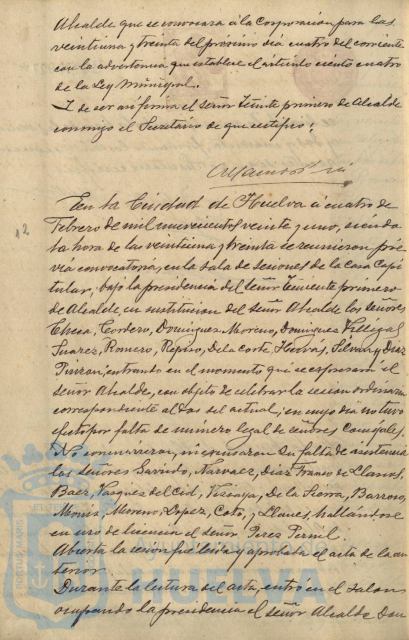 Alcalde que se convocara á la Corporación para las
veintiuna y treinta del próximo día cuatro del corriente
con la advertencia que establece el artículo ciento cuatro
de la Ley Municipal.
Y de ser así firma el señor Teniente primero de Alcalde
conmigo el Secretario de que certifico:
En la Ciudad de Huelva á cuatro de
12
Febrero de mil novecientos veinte y uno, siendo
la hora de las veintiuna y treinta se reunieron pré-
via convocatoria, en la sala de sesiones de la Casa Capi-
tular, bajo la presidencia del señor Teniente primero
de Alcalde, en sustitución del señor Alcalde los señores
Checa, Cordero, Dominguez Moreno, Dominguez Villegas
Suarez, Romero, Repiso, De la Corte, Hervas, Silvan y Diaz
entrando en el momento que se expresará el
señor Alcalde, con objeto de celebrar la sesion ordinaria
correspondiente al dos del actual, en cuyo día no tuvo
efecto por falta de número legal de señores Concejales.
No concurrieron, ni escusaron su falta de asistencia
los señores Garrido, Narvaez, Diaz Franco de Llanos,
Baez, Vazquez del Cid, Vizcaya, De la Sierra, Barroso,
Moreno, Lopez, Coto, y Llanes, hallándose
en uso de licencia el señor Perez
Abierta la sesión fué leida y aprobada el acta de la an-
terior.
Durante la lectura del acta, entró en el Salon
ocupando la presidencia el señor Alcalde Don
PORTUS MARIS
HUELVA